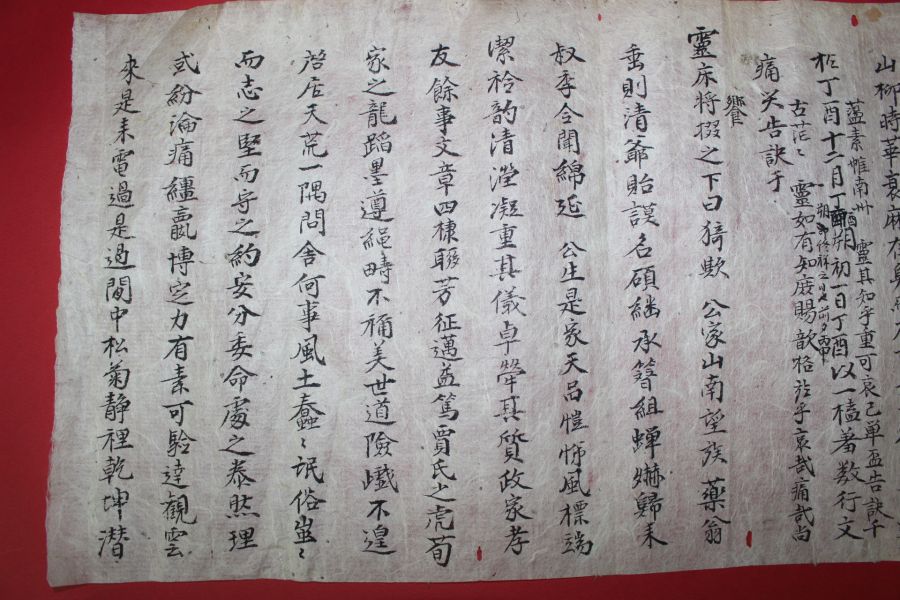 山柳時華衰麻在身
蘊素帷南州 靈其如乎重可哀已單盃告訣千
古茫〻 靈如有知庶賜歆格於乎哀哉痛哉尚
饗
於丁酉十二月丁酉朔初一日丁酉以一榼著数行文
痛哭告訣于
靈床將掇之下曰猗歟 公家山南望族藥翁
垂則清爺貽謨名碩継承簪組蟬嫣歸来
叔季令聞綿延 公生是家天品愷悌風標端
潔衿韵清瀅凝重其儀卓犖其質政家孝
友餘事文章四棣聯芳征邁益篤賈氏之虎荀
家之龍蹈墨遵繩疇不禰美世道險巇不遑
啓居天荒一隅問舍何事風土蠢〻氓俗蚩〻
而志之堅而守之約安分委命處之泰然理
或紛淪痛纏嬴博定力有素可驗達觀雲
來是来電過是過閒中松菊静裡乾坤潜